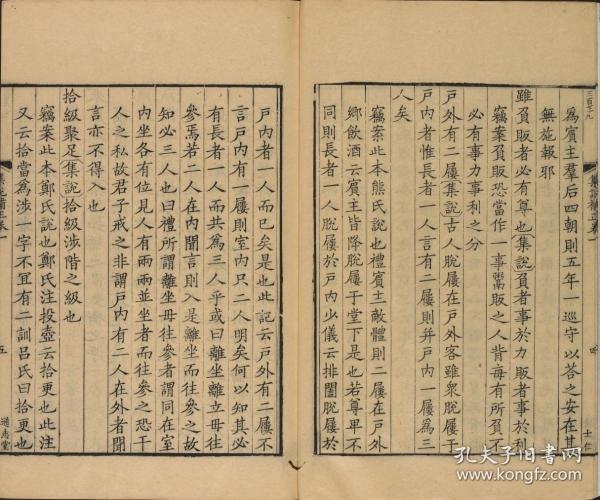 為賓主羣后四朝則五年一巡守以荅之安在其
無施報邪
雖負販者必有尊也集說負者事於力販者事於利
竊案負販恐當作一事鬻販之人背每有所負不
必有事力事利之分
戶外有二屨集說古人脫屨在戶外客雖衆脫屨于
戶内者惟長者一人言有二屨則并戶内一屨為三
人矣
竊案此本熊氏說也禮賓主敵體則二屨在戶外
鄉飲酒云賓主皆降脫屨于堂下是也若尊卑不
同則長者一人脫屨於戶内少儀云排闔脫屨於
集說補正卷一
四
三百十九
戶内者一人而已矣是也此記云戶外有二屨不
言戶内有一屨則室内只二人明矣何以知其必
有長者一人而共為三人乎或曰離坐離立毋往
參焉若一人在内聞言則入是離坐而往參之故
知必三人也曰禮所謂離坐毋往參者謂同在室
内坐各有位見人有兩兩並坐者而往參之恐干
人之私故君子戒之非謂戶内有二人在外者聞
言亦不得入也
拾級聚足集說拾級涉階之級也
竊案此本鄭氏說也鄭氏注投壺云拾更也此注
又云拾當為涉一字不冝有二訓吕氏曰拾更也
集說補正卷一
五
通志堂
孔夫子旧书网
www.kongfz.com